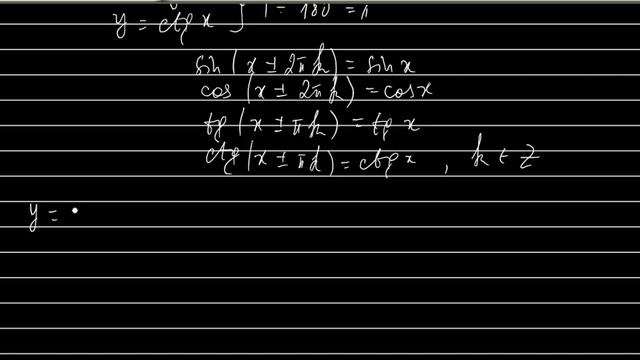 y = ctg x } T = 180° = π
sin(x ± 2πk) = sin x
cos(x ± 2πk) = cos x
tg(x ± πk) = tg x
ctg(x ± πk) = ctg x , k ∈ Z
y =